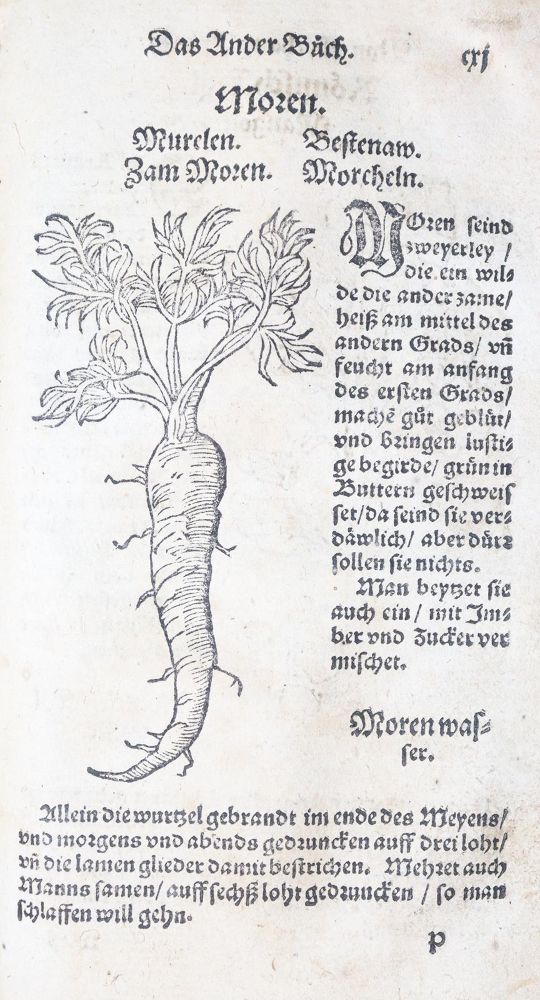 Das Ander Bůch.
cxj
Moren.
Murelen. Bestenaw.
Zam Moren. Morcheln.
MOren seind
zweyerley /
die ein wil⸗
de die ander zame/
heiß am mittel des
andern Grads/ vñ
feucht am anfang
des ersten Grads/
machẽ gůt geblüt/
vnd bringen lusti⸗
ge begirde/ grün in
Buttern geschweis
set/da seind sie ver⸗
däwlich/ aber dürr
sollen sie nichts.
Man beytzet sie
auch ein/ mit Jm⸗
ber vnd Zucker ver
mischet.
Moren was⸗
ser.
Allein die wurtzel gebrandt im ende des Meyens/
vnd morgens vnd abends gedruncken auff drei loht/
vñ die lamen glieder damit bestrichen. Mehret auch
Manns samen/ auff sechß loht gedruncken / so man
schlaffen will gehn.
P